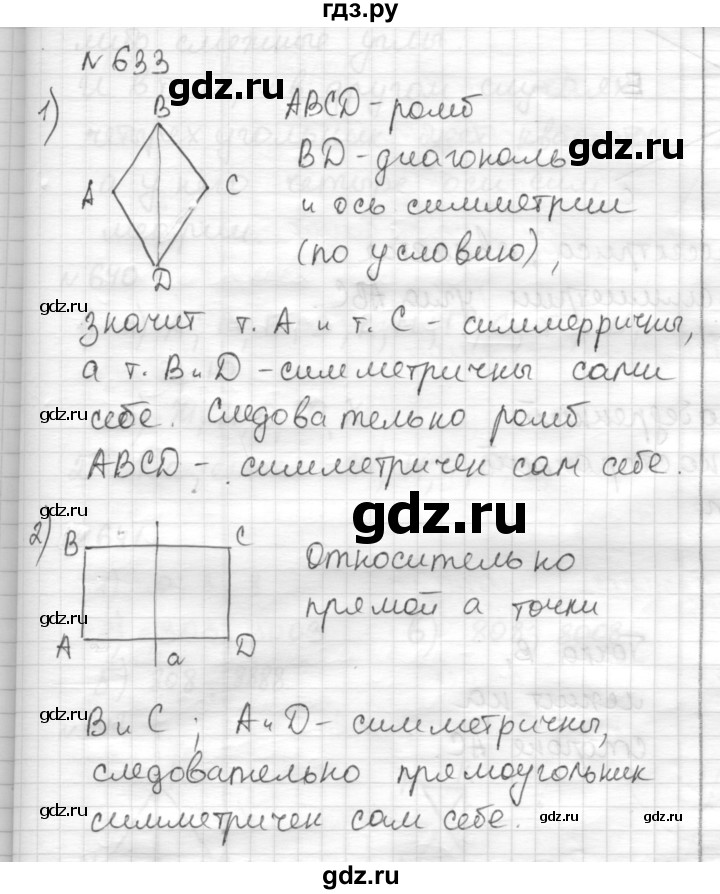 гдз.ру
№633
gdz.ru
1)
B
A
C
D
ABCD - ромб
BD - диагональ
gdz.ru
и ось симметрии
(по условию),
gdz.ru
gdz.ru
значит т. А и т. С - симмерричны,
а т. В и D - симметричны сами
gdz.ru
gdz.ru
себе. Следовательно ромб
ABCD - симметричен сам себе.
2)
B
C
A
D
a
gdz.ru
Относительно
прямой а точки
gdz.ru
gdz.ru
В и С ; А и D - симметричны,
следовательно прямоугольник
симметричен сам себе.
gdz.ru
gdz.ru
gdz.ru
gdz.ru